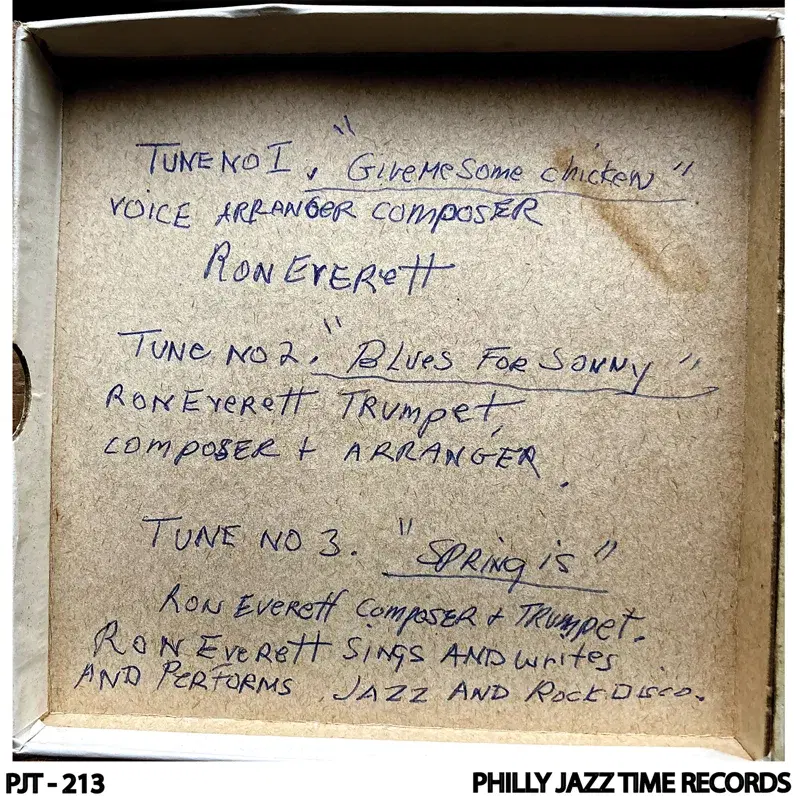 TUNE NO I. "GIVE ME SOME chicken"
VOICE ARRANGER COMPOSER
RON EVERETT
TUNE NO 2. "BLUES FOR SONNY"
RON EVERETT TRUMPET,
COMPOSER + ARRANGER.
TUNE NO 3. "SPRING is"
RON EVERETT COMPOSER + TRUMPET.
RON EVERETT SINGS AND writes
AND PERFORMS JAZZ AND ROCK DISCO.
PJT - 213
PHILLY JAZZ TIME RECORDS